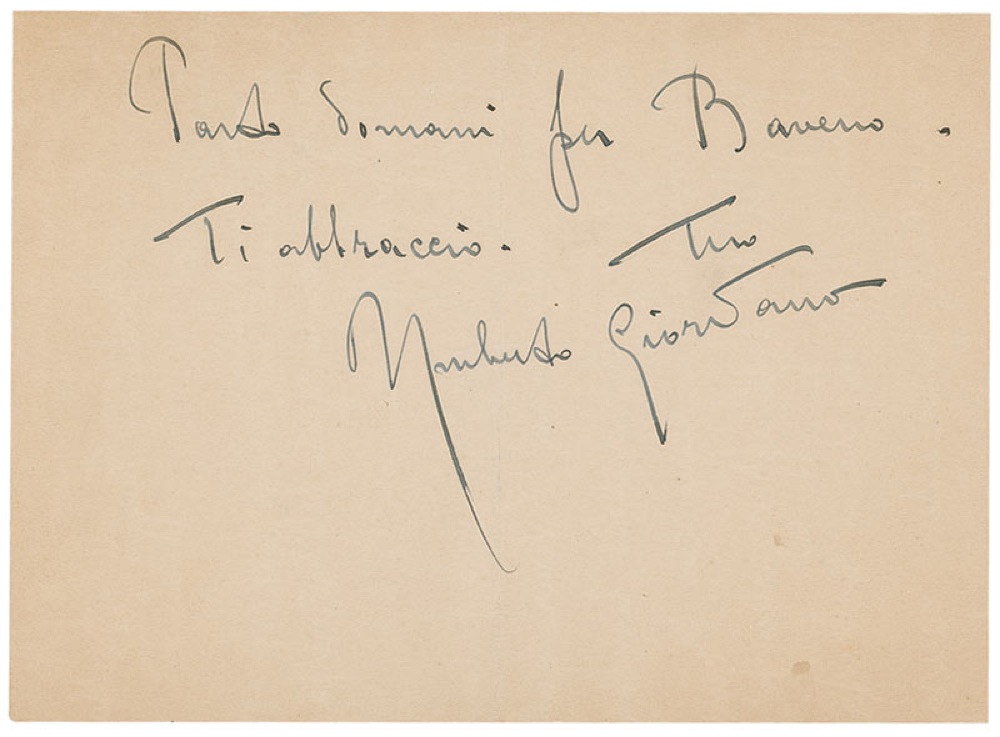 Parto domani per Baveno.
Ti abbraccio. Tuo
Umberto Giordano